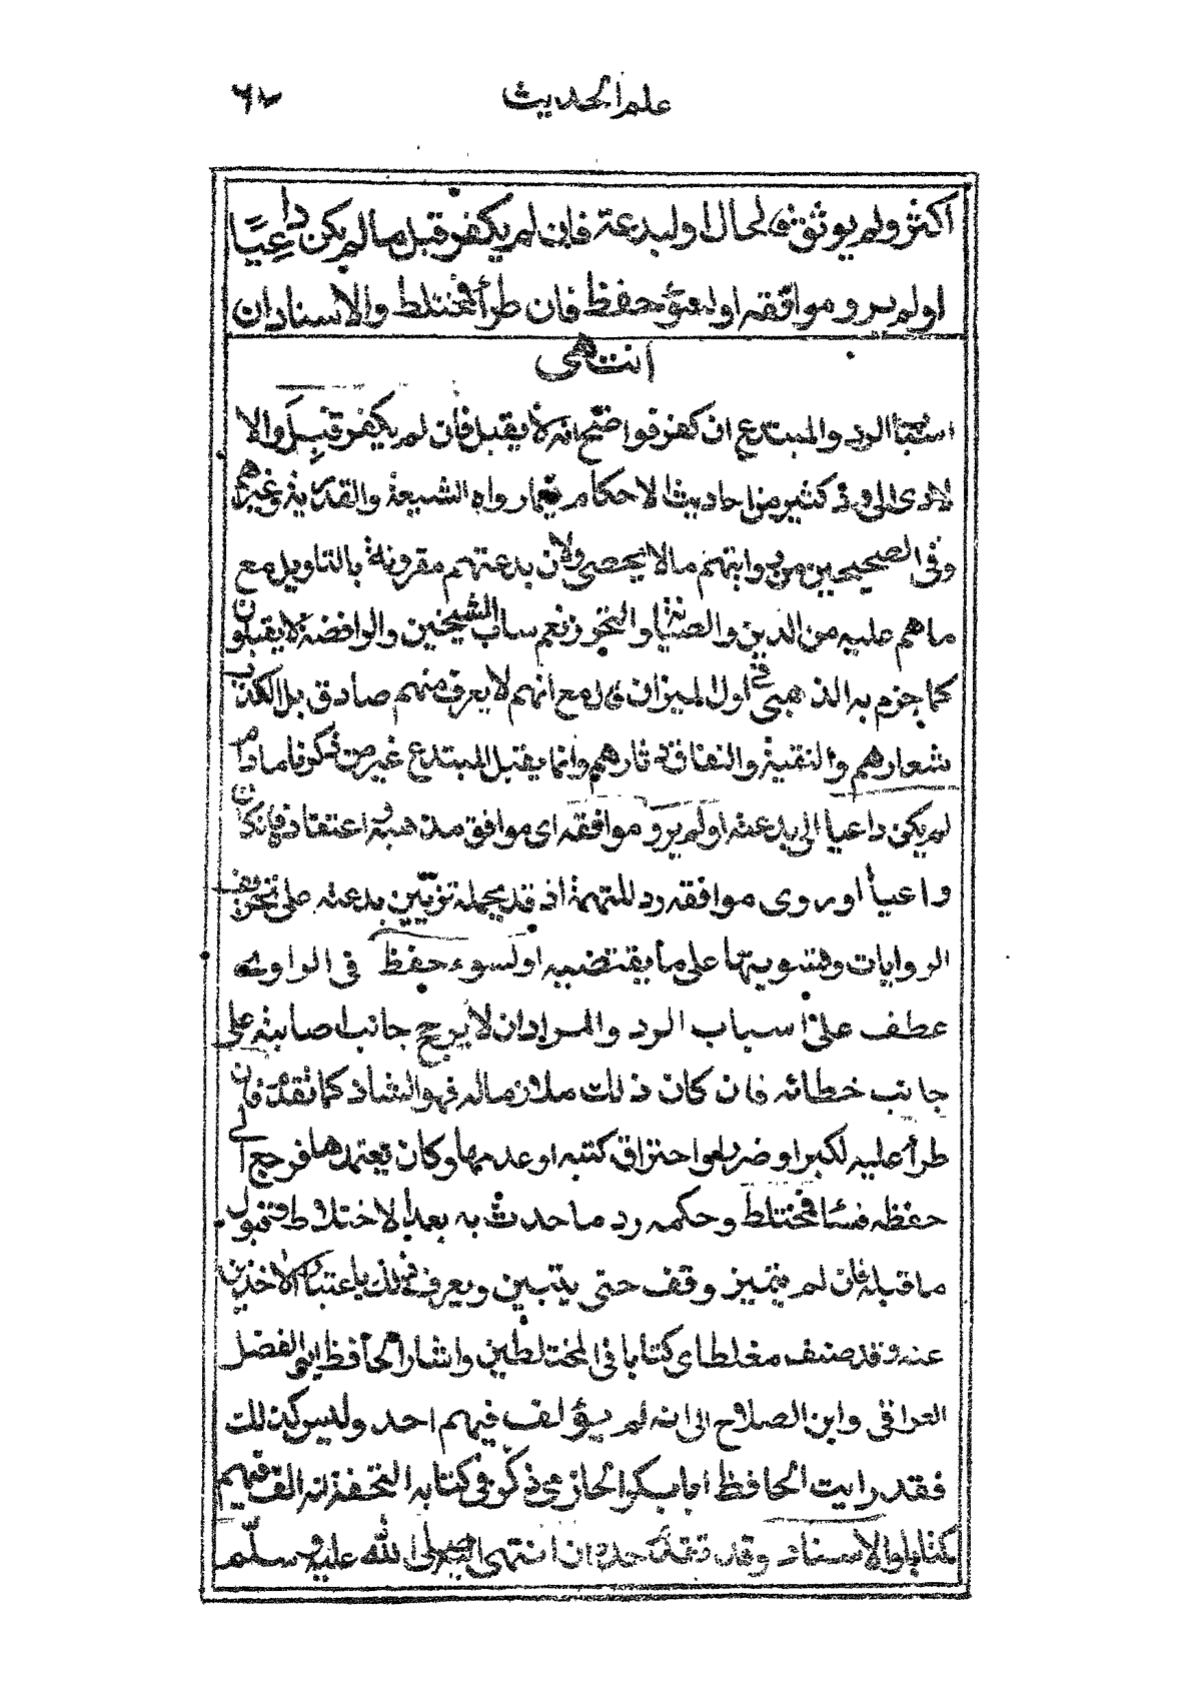 علم الحديث ٦٧
أكثر ولم يوثق فالحال او لبدعة فان لم يكفر قبل مالم يكن داعيًا
او لم يرو موافقه او لسوء حفظ فان طرأ فمختلط والاسناد ان
انتهى
اسباب الرد والمبتدع ان كفر فواضح انه لا يقبل فان لم يكفر قبل والا
لادى الى رد كثير من احاديث الاحكام مما رواه الشيعة والقدرية وغيرهم
وفى الصحيحين من روايتهم مالا يحصى ولان بدعتهم مقرونة بالتاويل مع
ماهم عليه من الدين والصيانة والتحرز نعم ساب الشيخين والرافضة لا يقبلون
كما جزم به الذهبى فى اول الميزان قال مع انهم لا يعرف منهم صادق بل الكذب
شعارهم والتقية والنفاق دثارهم وانما يقبل المبتدع غير من ذكرنا مادام
لم يكن داعيا الى بدعته او لم يرو موافقه اى موافق مذهبه واعتقاده فان كان
داعيا او روى موافقه رد للتهمة اذ قد يحمله تزيين بدعته على تحريف
الروايات وتسويتها على ما يقتضيه او لسوء حفظ فى الراوى
عطف على اسباب الرد والمراد ان لا يرجح جانب اصابته على
جانب خطائه فان كان ذلك ملازما له فهو الشاذ كما تقدم فان
طرأ عليه لكبر او ضر او احتراق كتبه او عدمها وكان يعتمدها فرجع الى
حفظه فساء فمختلط وحكمه رد ما حدث به بعد الاختلاط وقبول
ما قبله فان لم يتميز وقف حتى يتبين ويعرف ذلك باعتبار الاخذين
عنه وقد صنف مغلطاى كتابا فى المختلطين واشار الحافظ ابو الفضل
العراقى وابن الصلاح الى انه لم يؤلف فيهم احد وليس كذلك
فقد رايت الحافظ ابا بكر الحازمى ذكر فى كتابه التحفة انه الف فيهم
كتابا والاسناد وقد تقدم حده ان انتهى اليه صلى الله عليه وسلم